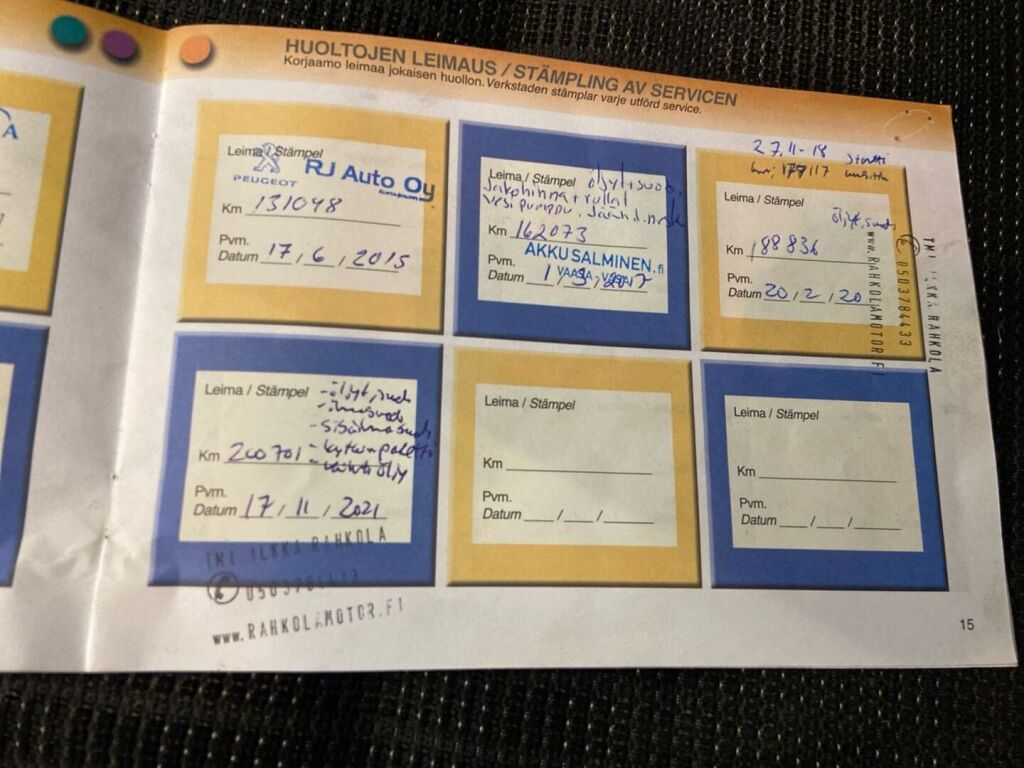 A
HUOLTOJEN LEIMAUS / STÄMPLING AV SERVICEN
Korjaamo leimaa jokaisen huollon. Verkstaden stämplar varje utförd service.
Leima / Stämpel
PEUGEOT
RJ Auto Oy
Km 131048
Pvm.
Datum 17, 6, 2015
Leima / Stämpel öljyt+suod.
Jakohihna + rullat
vesipumppu.
Km 162073
AKKUSALMINEN.fi
Pvm.
VAASA-VASA
Datum 1/3/2017
27.11-18 Startti
Leima / Stämpel
öljyt, suod
Km 188836
Pvm.
Datum 20, 2, 20
TMI ILKKA RAHKOLA
0503784433
www.RAHKOLAMOTOR.FI
Leima / Stämpel -öljyt, suod
-ilmasuod
-sisäilmasuod
Km 200701 -kytkinpaketti
Pvm.
Datum 17, 11, 2021
TMI ILKKA RAHKOLA
0503784433
www.RAHKOLAMOTOR.FI
Leima / Stämpel
Km
Pvm.
Datum / /
Leima / Stämpel
Km
Pvm.
Datum / /
15